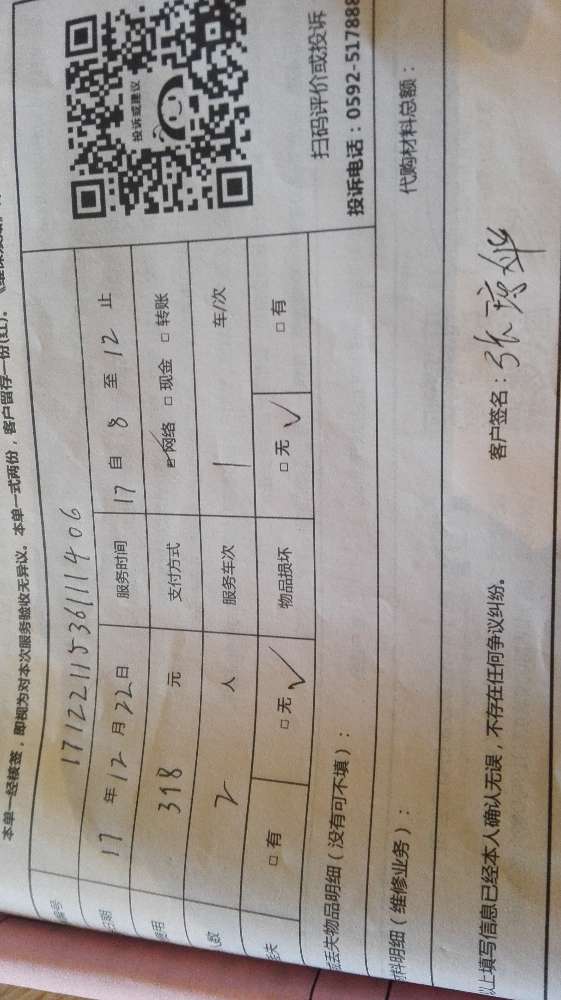 本单一经核签，即视为对本次服务验收无异议。本单一式两份，客户留存一份(红)。
编号 171221153611406
日期 17 年 12 月 22 日 服务时间 17 自 8 至 12 止
费用 318 元 支付方式 网络 □ 现金 □ 转账
人数 2 人 服务车次 1 车/次
丢失 □ 有 □ 无 ✓ 物品损坏 □ 无 ✓ □ 有
投诉或建议
扫码评价或投诉
投诉电话：0592-517888
丢失物品明细（没有可不填）：
材料明细（维修业务）： 代购材料总额：
以上填写信息已经本人确认无误，不存在任何争议纠纷。 客户签名：张